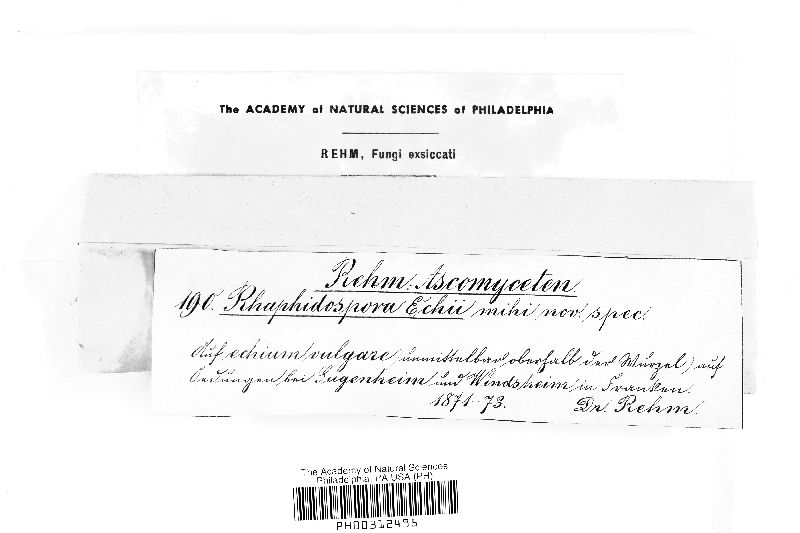 The ACADEMY of NATURAL SCIENCES of PHILADELPHIA
REHM, Fungi exsiccati
Rehm: Ascomyceten.
190. Rhaphidospora Echii mihi nov. spec.
Auf echium vulgare (unmittelbar oberhalb der Wurzel) auf
Oedungen bei Sugenheim und Windsheim in Franken.
1871-73. Dr. Rehm.
The Academy of Natural Sciences
Philadelphia, PA USA (PH)
PH00312495